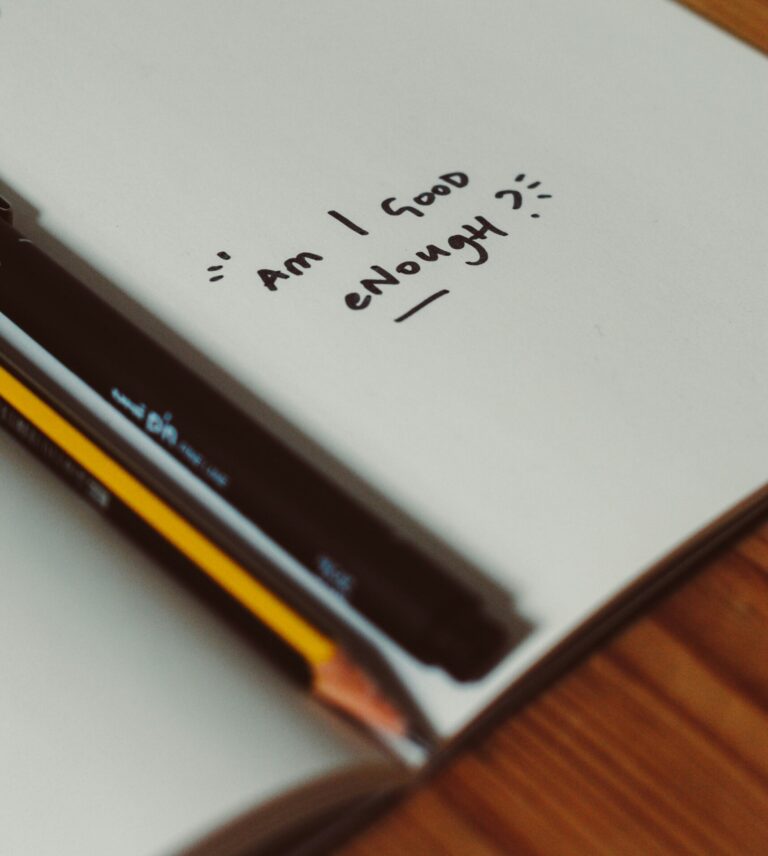 "Am I Good
eNougH?"
uni